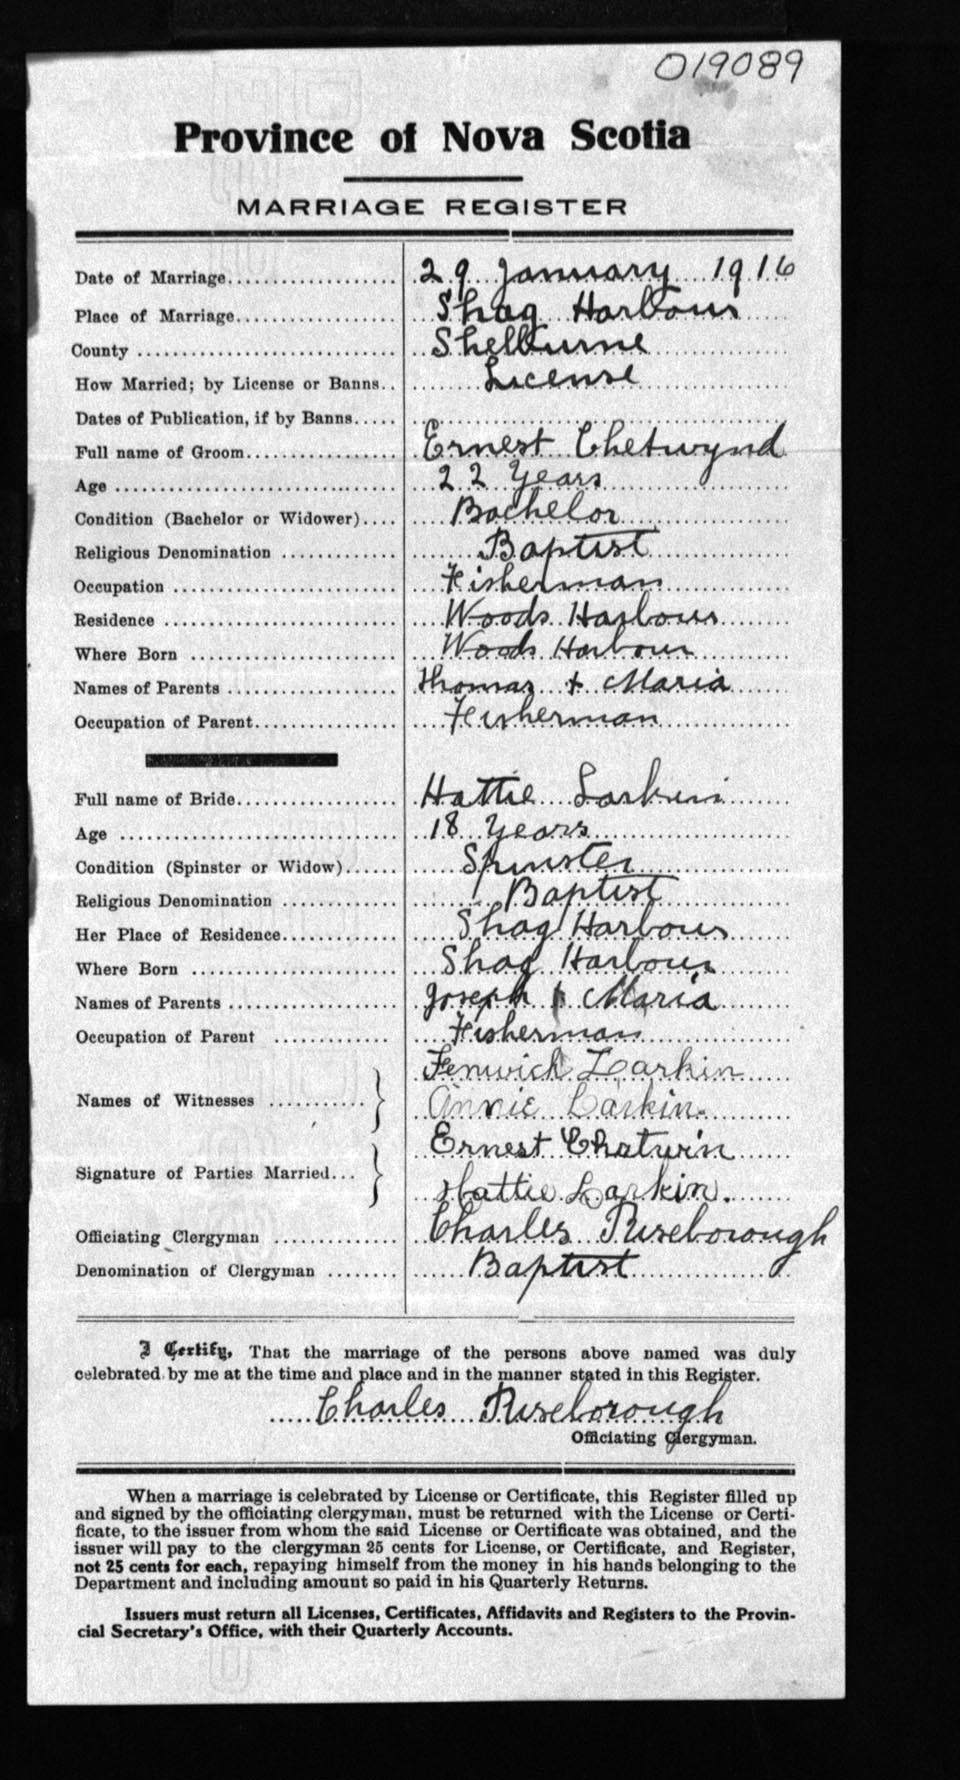 019089
Province of Nova Scotia
MARRIAGE REGISTER
Date of Marriage................... 29 January 1916
Place of Marriage.................. Shag Harbour
County ............................. Shelburne
How Married; by License or Banns.. License
Dates of Publication, if by Banns.....
Full name of Groom................. Ernest Chetwynd
Age ................................ 22 Years
Condition (Bachelor or Widower).... Bachelor
Religious Denomination ............. Baptist
Occupation ......................... Fisherman
Residence .......................... Woods Harbour
Where Born ....................... Woods Harbour
Names of Parents ................... Thomas + Maria
Occupation of Parent................ Fisherman
Full name of Bride.................. Hattie Larkin
Age ............................... 18 Years
Condition (Spinster or Widow)...... Spinster
Religious Denomination ............. Baptist
Her Place of Residence............. Shag Harbour
Where Born ....................... Shag Harbour
Names of Parents ................... Joseph + Maria
Occupation of Parent ............. Fisherman
Fenwick Larkin
Names of Witnesses ...........
Annie Larkin.
Ernest Chetwin
Signature of Parties Married...
Hattie Larkin.
Officiating Clergyman .............. Charles Ruseborough
Denomination of Clergyman ........ Baptist
I Certify, That the marriage of the persons above named was duly
celebrated by me at the time and place and in the manner stated in this Register.
Charles Ruseborough
Officiating Clergyman.
When a marriage is celebrated by License or Certificate, this Register filled up
and signed by the officiating clergyman, must be returned with the License or Certi-
ficate, to the issuer from whom the said License or Certificate was obtained, and the
issuer will pay to the clergyman 25 cents for License, or Certificate, and Register,
not 25 cents for each, repaying himself from the money in his hands belonging to the
Department and including amount so paid in his Quarterly Returns.
Issuers must return all Licenses, Certificates, Affidavits and Registers to the Provin-
cial Secretary's Office, with their Quarterly Accounts.